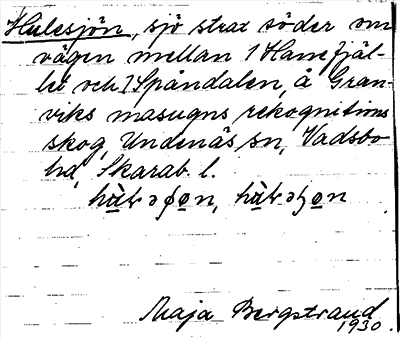 Hulesjön, sjö strax söder om
vägen mellan 1 Hanefjäl-
let och 1 Spåndalen, å Gran-
viks masugns rekognitions
skog, Undenäs sn, Vadsbo
hd, Skarab. l.

Maja Bergstrand
1930.